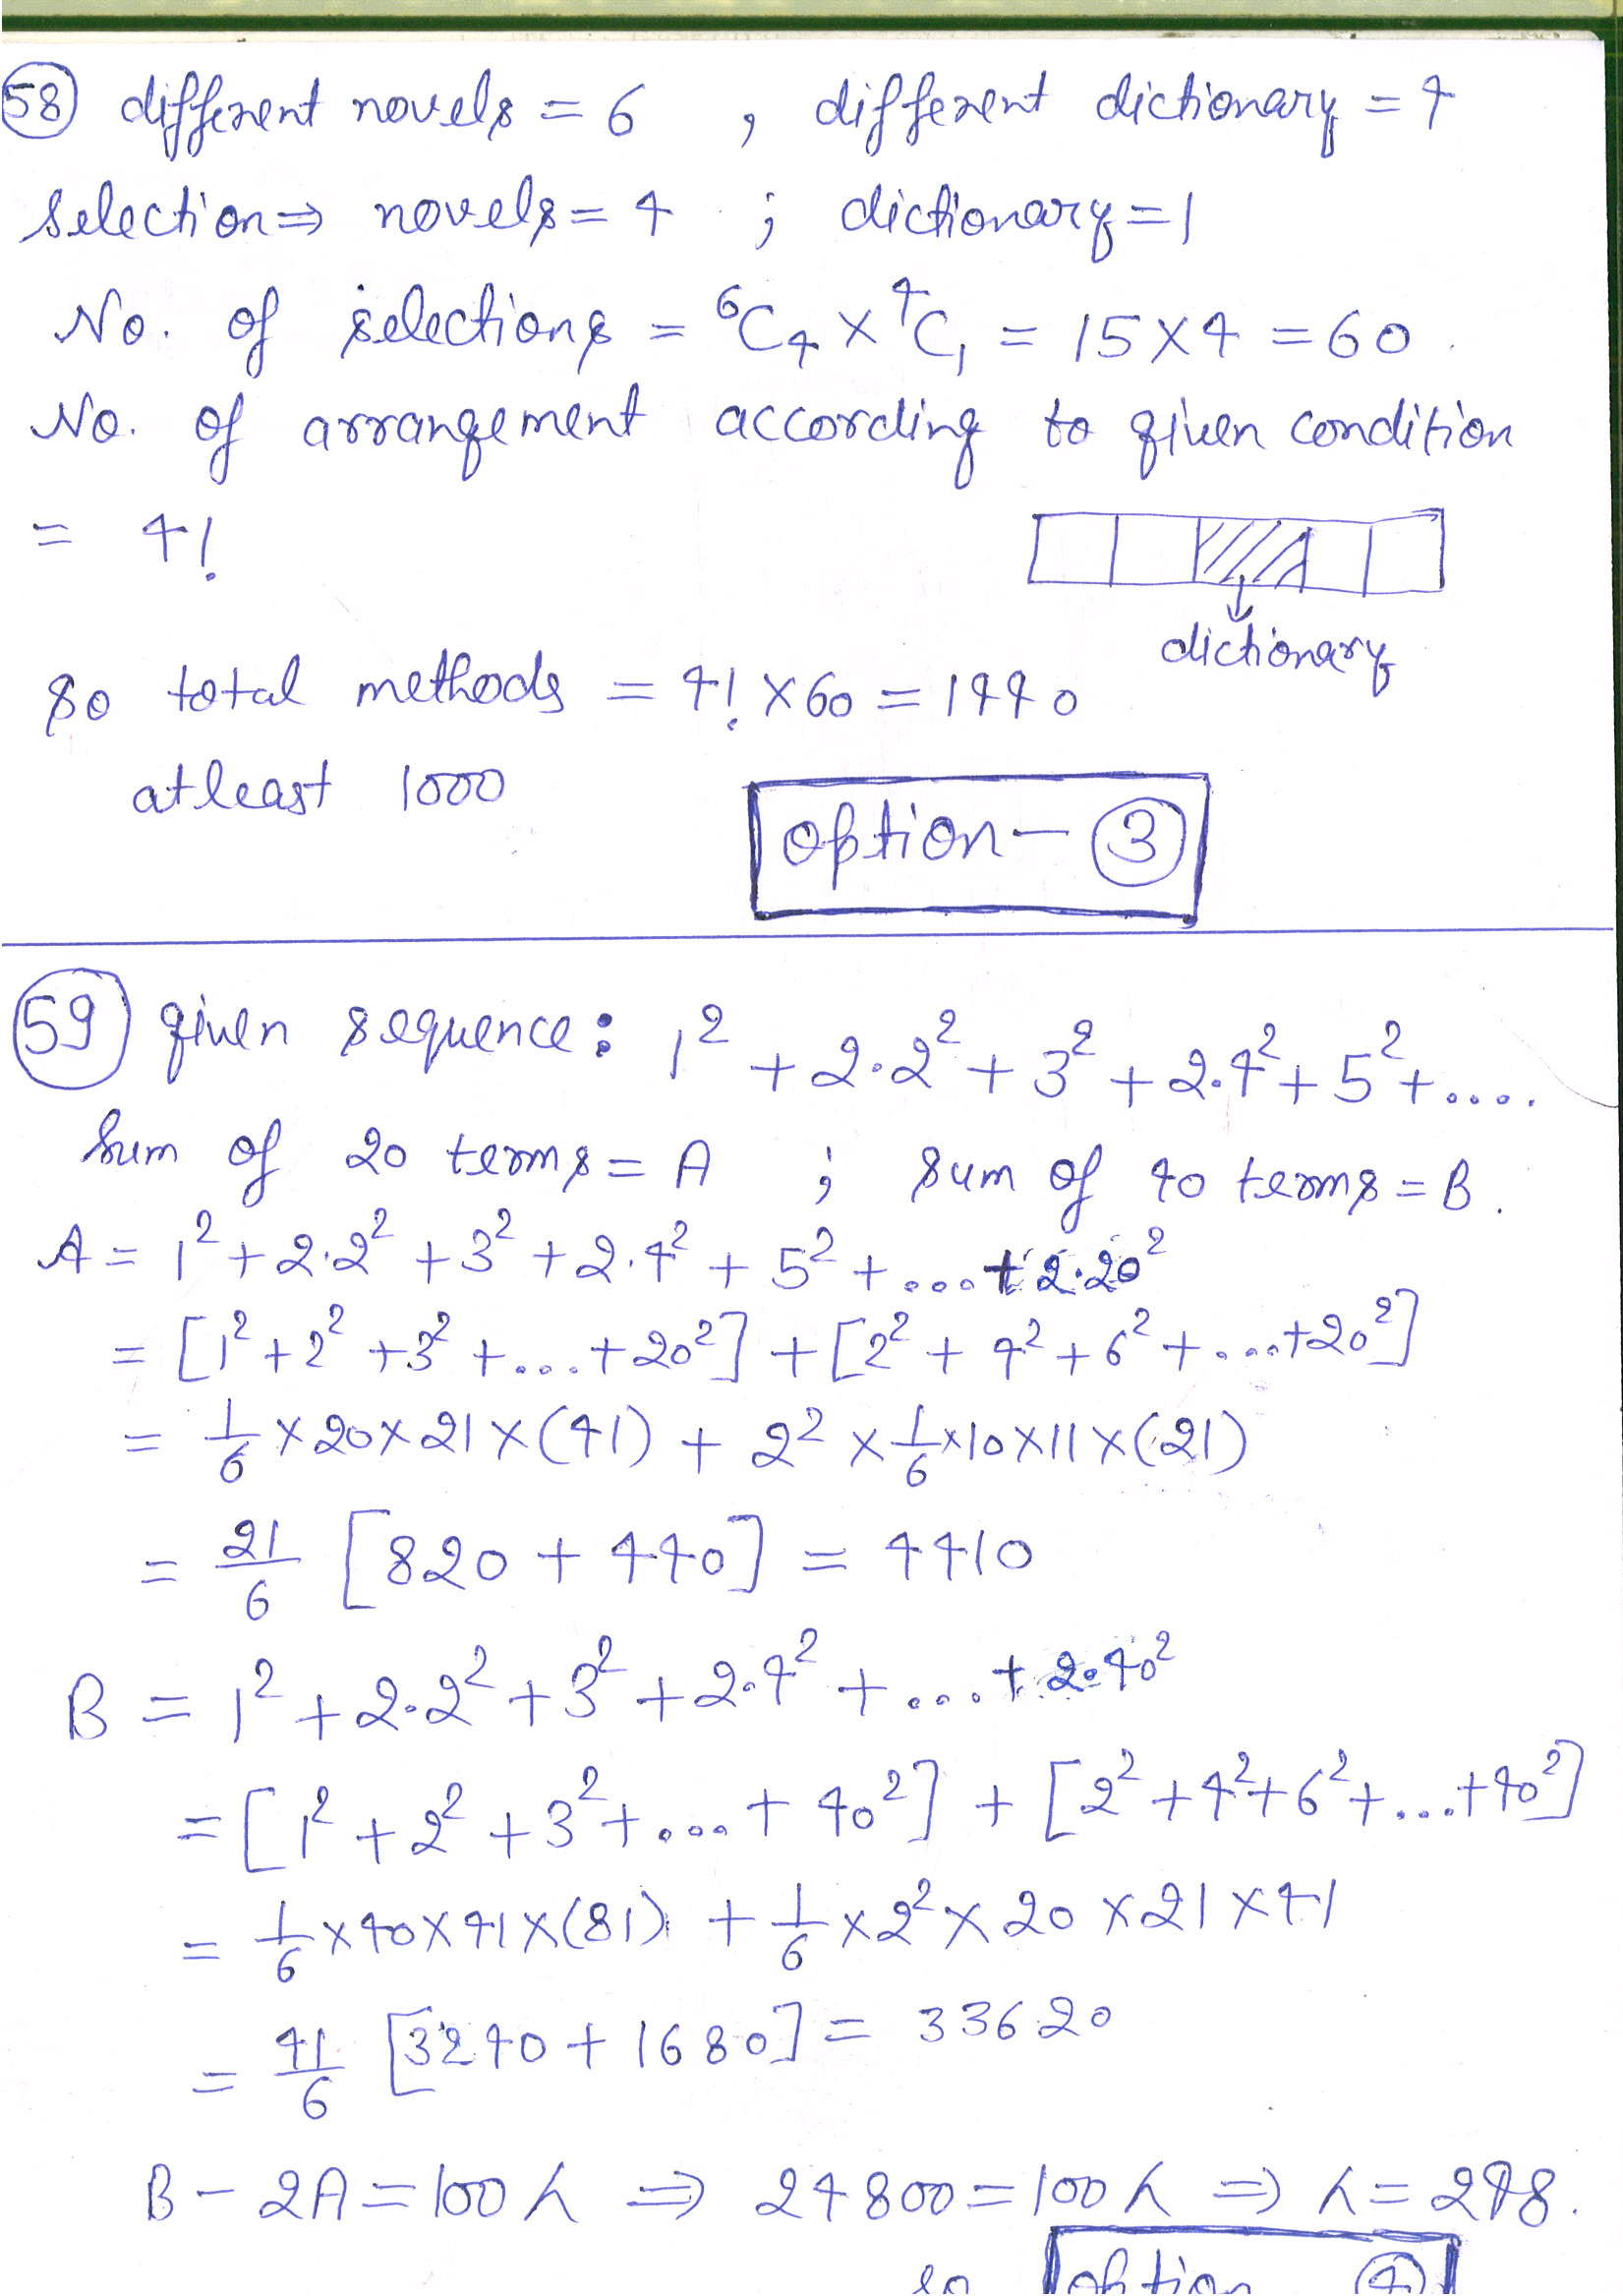 58 different novels = 6 , different dictionary = 4
Selection ⇒ novels = 4 ; dictionary = 1
No. of selections = ⁶C₄ × ⁴C₁ = 15 × 4 = 60 .
No. of arrangement according to given condition
= 4!
dictionary
so total methods = 4! × 60 = 1440
atleast 1000
option – 3
59 given sequence : 1² + 2·2² + 3² + 2·4² + 5² + ....
Sum of 20 terms = A ; sum of 40 terms = B .
A = 1² + 2·2² + 3² + 2·4² + 5² + ... + 2·20²
= [1² + 2² + 3² + ... + 20²] + [2² + 4² + 6² + ... + 20²]
= 1/6 × 20 × 21 × (41) + 2² × 1/6 × 10 × 11 × (21)
= 21/6 [820 + 440] = 4410
B = 1² + 2·2² + 3² + 2·4² + ... + 2·40²
= [1² + 2² + 3² + ... + 40²] + [2² + 4² + 6² + ... + 40²]
= 1/6 × 40 × 41 × (81) + 1/6 × 2² × 20 × 21 × 41
= 41/6 [3240 + 1680] = 33620
B – 2A = 100 λ ⇒ 24800 = 100 λ ⇒ λ = 248 .
so option 4